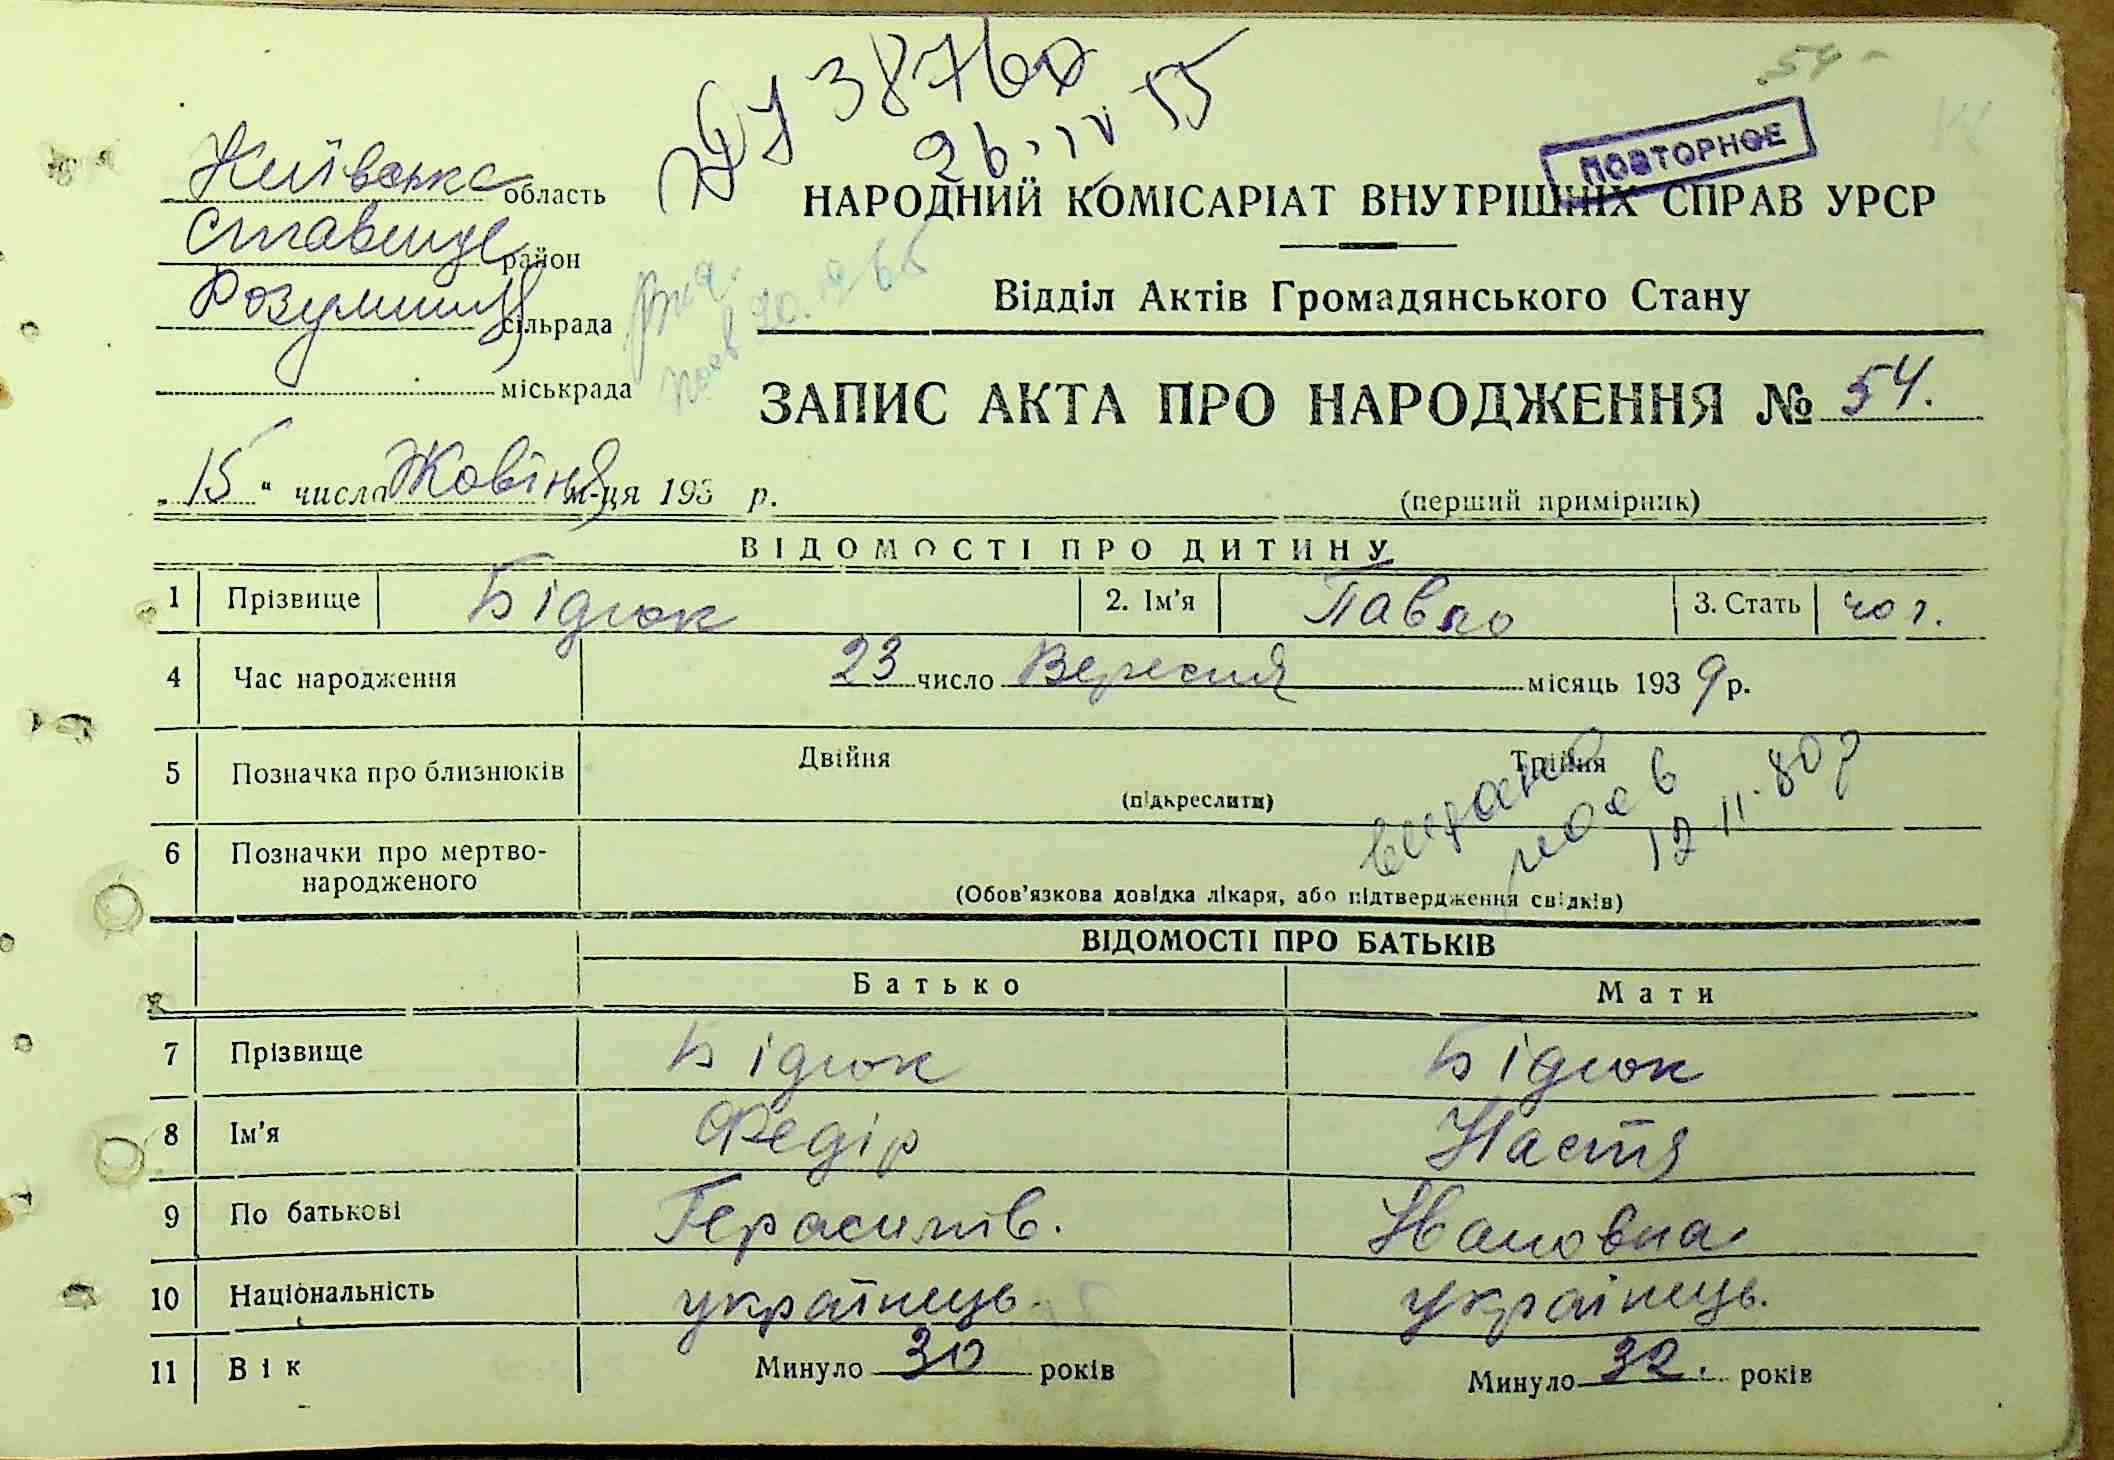 387
26.IV 55
54
ПОВТОРНОЕ
Київська область
Ставище район
сільрада
міськрада
НАРОДНИЙ КОМІСАРІАТ ВНУТРІШНІХ СПРАВ УРСР
Відділ Актів Громадянського Стану
ЗАПИС АКТА ПРО НАРОДЖЕННЯ № 54.
„15“ числа Жовтня м-ця 193 р.
(перший примірник)
ВІДОМОСТІ ПРО ДИТИНУ
1 Прізвище Бідюк 2. Ім'я Павло 3. Стать чол.
4 Час народження 23 число Вересня місяць 1939 р.
5 Позначка про близнюків Двійня Трійня
(підкреслити)
12 11.80 р
6 Позначки про мертво-
народженого
(Обов'язкова довідка лікаря, або підтвердження свідків)
ВІДОМОСТІ ПРО БАТЬКІВ
Батько Мати
7 Прізвище Бідюк Бідюк
8 Ім'я Федір Настя
9 По батькові Герасимів. Ивановна.
10 Національність українець. українець.
11 Вік Минуло 30 років Минуло 32. років